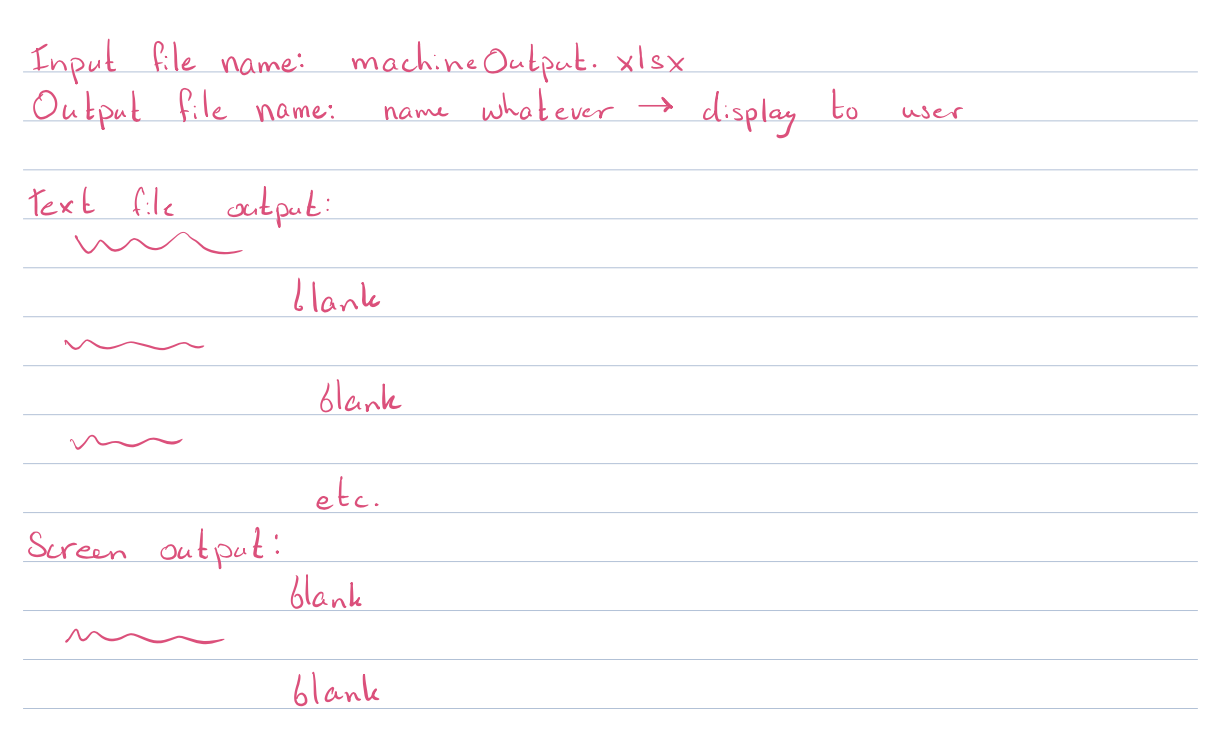 Input file name: machineOutput.xlsx
Output file name: name whatever → display to user
Text file output:
blank
blank
etc.
Screen output:
blank
blank